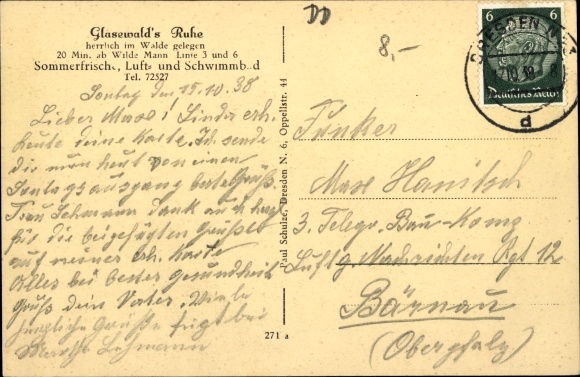 Glasewald's Ruhe
herrlich im Walde gelegen
20 Min. ab Wilde Mann Linie 3 und 6
Sommerfrische, Luft- und Schwimmbad
Tel. 72527
Sontag den 15.10.38
Lieber Maxe! Linder erh.
heute deine Karte. Ich sende
dir nun heut von einen
Sontagsausgang beste Grüße.
Frau Lehmann dankt auch
für die beigefügten Grüße
auf meiner erh. Karte
Alles bei bester Gesundheit
Gruß dein Vater. Viele
Grüße fügt bei
Martha Lehmann
271 a
Paul Schulze, Dresden N. 6, Oppellstr. 44
DD
8,-
6 6
Deutsches Reich
DRESDEN
10.38
d
Funker
Maxe Hanitsch
3. Telegr. Bau-Komp.
Luftg. Nachrichten Rgt 12
Bärnau
(Oberpfalz)